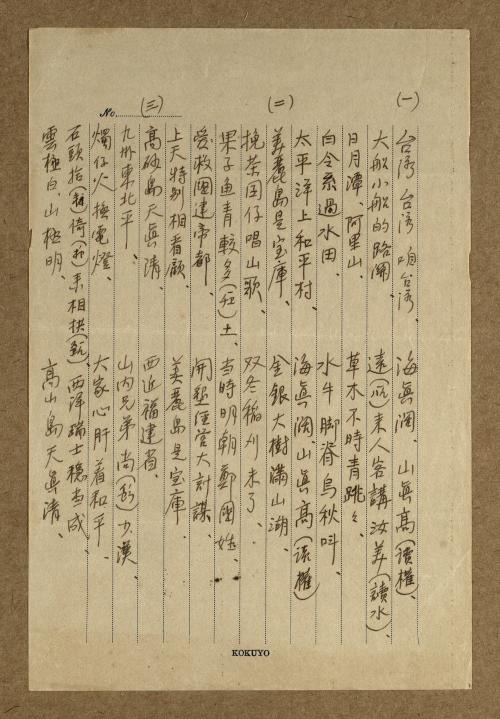 (一)
台湾 台湾 咱台湾、 海真阔、山真高(讀權)、
大船小船的路関、 遠(阮)来人客講汝美(讀水)、
日月潭、阿里山、 草木不時青跳々、
白令糸過水田、 水牛脚脊烏秋叫、
太平洋上和平村、 海真阔、山真高(讀權)
(二)
美麗島是宝庫、 金銀大樹滿山湖、
挽茶囝仔唱山歌、 双冬稲刈未了、
果子魚青較多(於)土、 当時明朝鄭國姓、
愛救國建帝都 開墾経営大計謀、
上天特別相看顧、 美麗島是宝庫、
(三)
高砂島天真清、 西近福建省、
九州東北平、 山内兄弟尚(彭)少漢、
燭仔火換電燈、 大家心肝着和平、
石頭拾倚来相拱 西洋瑞士穏当成、
雲極白、山極明、 高山島天真清、
No.
KOKUYO